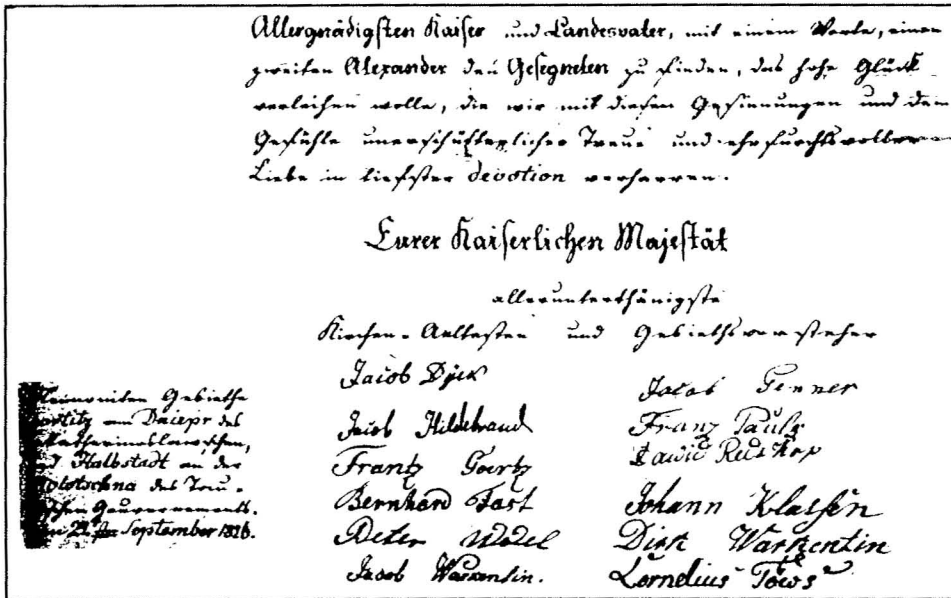 Allergnädigsten Kaiser und Landesvater, mit einem Worte, einen
zweiten Alexander den Gesegneten zu finden, das hohe Glück
verleihen wolle, die wir mit diesen Gesinnungen und dem
Gefühle unerschütterlicher Treue und ehrfurchtsvoller
Liebe in tiefster devotion verharren.
Eurer Kaiserlichen Majestät
allerunterthänigste
Kirchen-Aeltesten und Gebiethsvorsteher
Jacob Dyck
Jacob Hildebrand
Frantz Goertz
Bernhard Fast
Peter Wedel
Jacob Warkentin.
Jacob Penner
Franz Pauls
Johann Klassen
Dirk Warkentin
Cornelius Töws
Gebiethe
am Dniepr des
Halbstadt an der
des Tau-
Gouvernements.
22 September 1826.